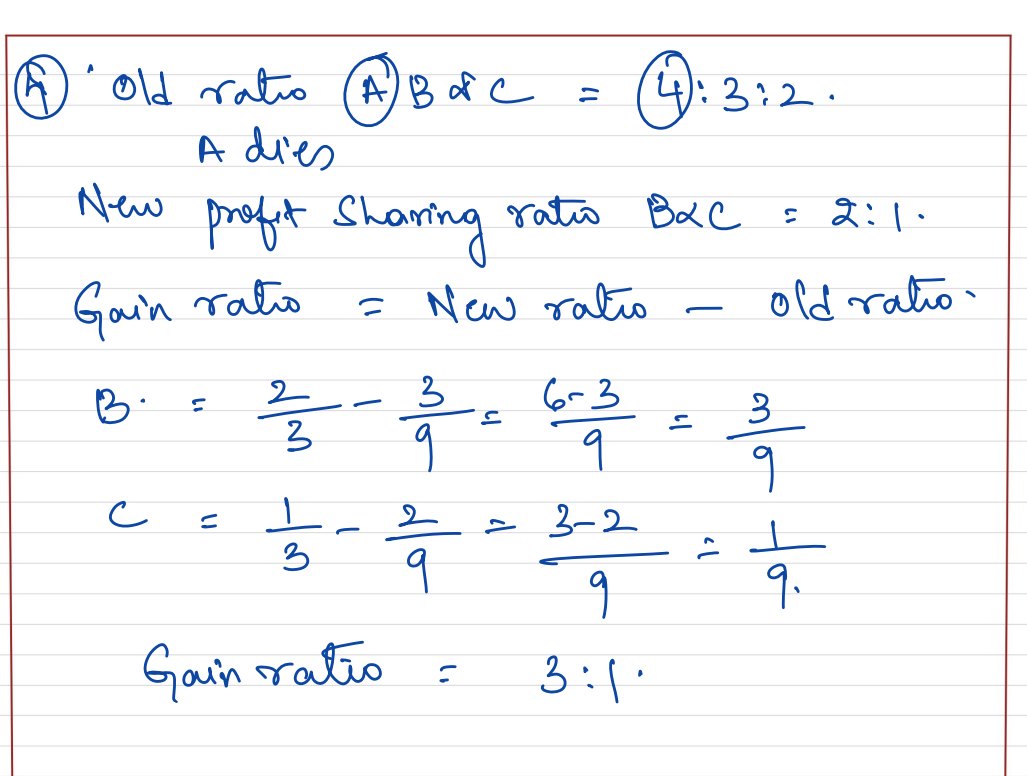 4 Old ratio A B & C = 4:3:2.
A dies
New profit sharing ratio B & C = 2:1.
Gain ratio = New ratio - old ratio.
B. = 2/3 - 3/9 = 6-3/9 = 3/9
C = 1/3 - 2/9 = 3-2/9 = 1/9.
Gain ratio = 3:1.